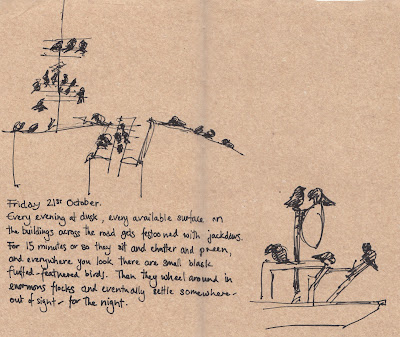 Friday 21st October.
Every evening at dusk, every available surface on
the buildings across the road gets festooned with jackdaws.
For 15 minutes or so they sit and chatter and preen,
and everywhere you look there are small black
fluffed-feathered birds. Then they wheel around in
enormous flocks and eventually settle somewhere -
out of sight - for the night.